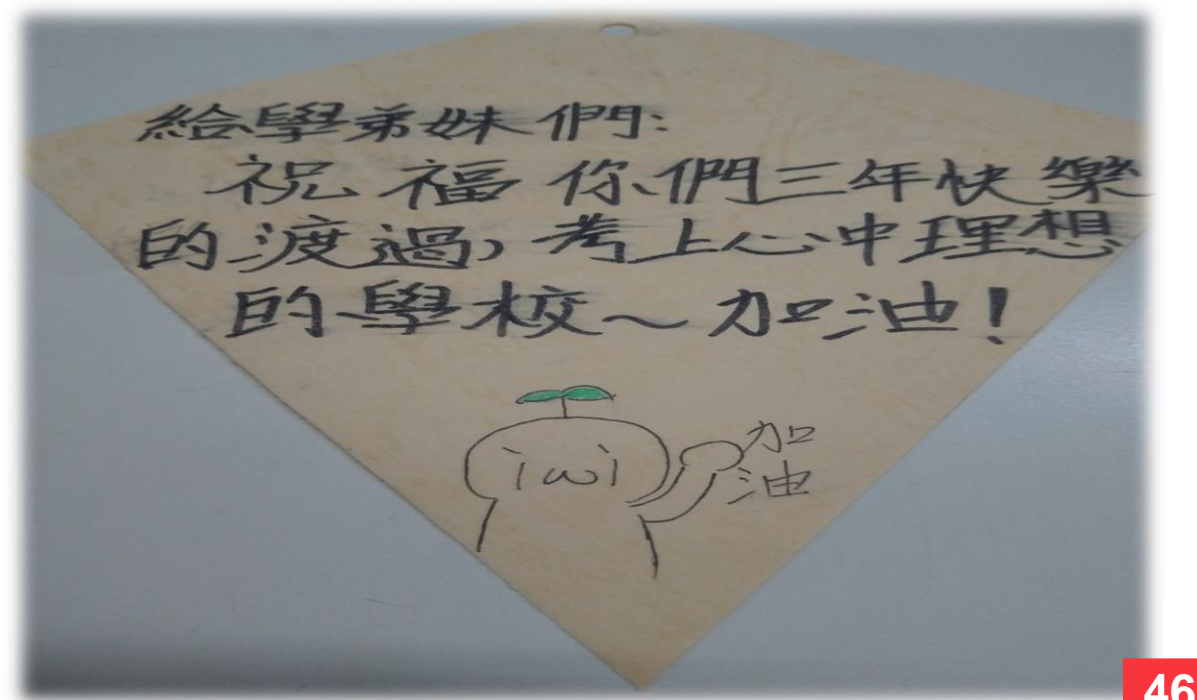 給學弟妹們:
祝福你們三年快樂
的渡過,考上心中理想
的學校～加油!
加
油
46